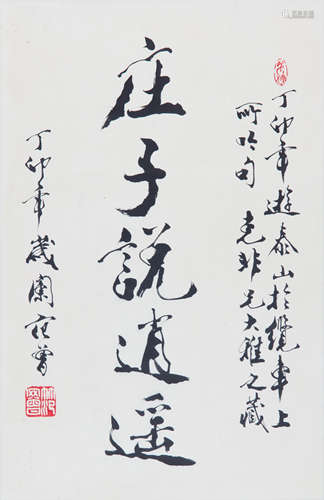 丁卯年遊泰山於纜車上
所吟句 克非兄大雅之藏
庄子說逍遥
丁卯年歲闌范曾